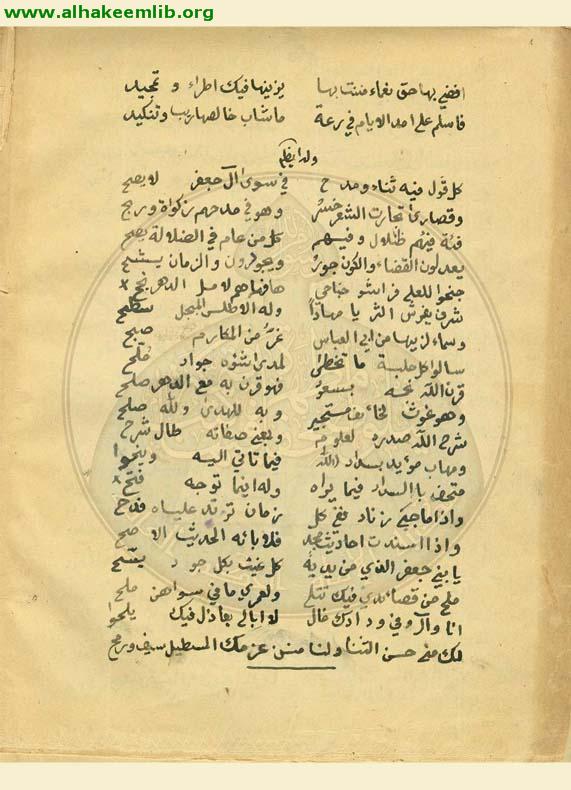 www.alhakeemlib.org
اقضي بها حق نعماء مننت بها يزينها فيك اطراء وتمجيد
فاسلم على امد الايام في رعة ماشاب خالصها ريب وتنكيد
وله ايضا
كل قول فيه ثناء ومدح في سوى آل جعفر لا يصح
وقصارى تجارت الشعر خسر وهو في مدحهم زكواة وربح
فئة فيهم ظلال وفيهم كل من عام في الضلالة يصح
يعدلون القضاء والكون جور ويجودون والزمان يشح
جنحوا للعلى
شرف يفرش الثريا مهاداً وله الاطلس المبجل سطح
وسماء لزينها من ابي العباس غر من المكارم صبح
كل حلبة ما تخطى لمدى اشؤه جواد
قرن الله نجمه بسعود فهو قرن به مع الدهر صلح
وهو غوث لخائف مستجير وبه للهدى ولله صلح
شرح الله صدره لعلوم وبمعنى صفاته طال شرح
ومهاب مؤيد بسداد الله فيما تأتي اليه وينحو
متحف بالسداد فيما يراه وله اينما توجه فتح
واذا ما جكى زناد ففي كل زمان توقد علياه قدح
واذا اسندت احاديث مجد فلابائه الحديث الاصح
يا بني جعفر الذي من يديه كل غيث بكل جود يسح
ملح من قصائدي فيك تتلى ولعمري ما في سواهن ملح
انا والروفي ودادك غال لا ابالي بعاذل فيك يلحوا
لك مني حسن الثنا ولنا من عزمك المستطيل سيف ورمح